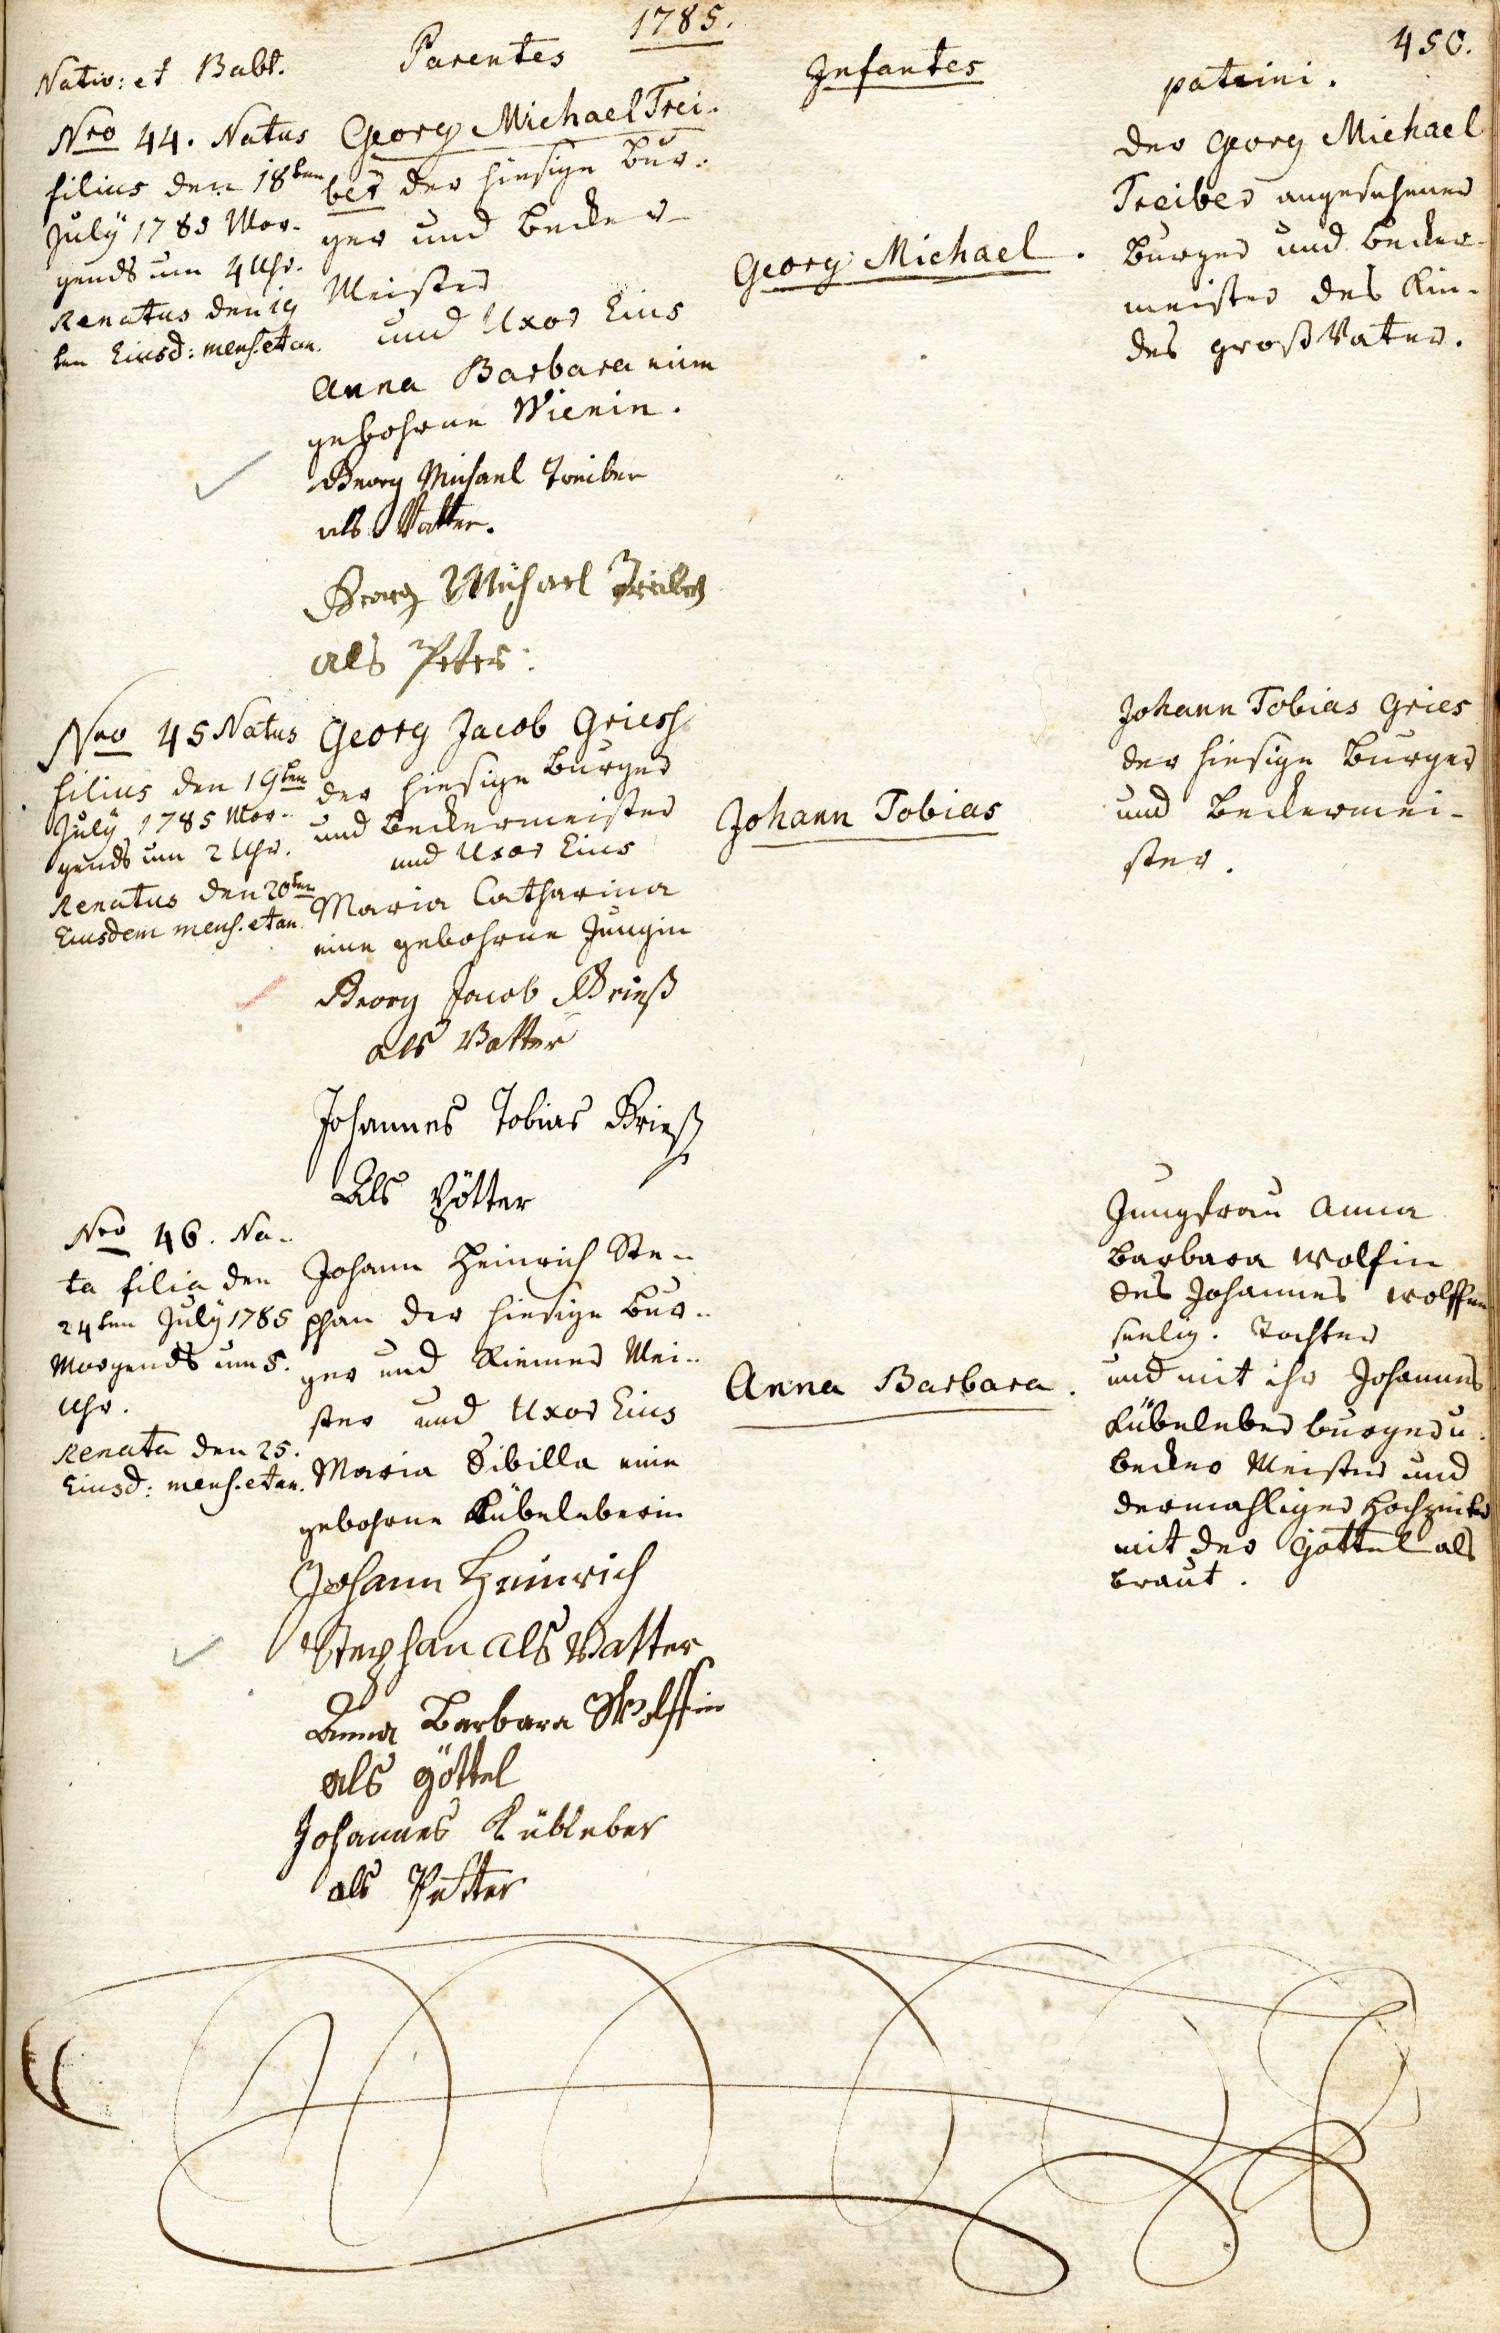 1785.
450.
Nativ: et Babt.
Parentes
Infantes
patrini.
Nro 44. Natus
filius den 18ten
July 1785 Mor-
gends um 4 Uhr.
Renatus den 19
ten Eiusd: mens. et an.
Georg Michael Trei-
ber der hiesige Bur-
ger und Becker-
Meister
und Uxor Eius
Anna Barbara eine
gebohrne Wienin.
Georg Michael Treiber
als Vatter.
Georg Michael Treiber
als Peter.
Georg Michael.
der Georg Michael
Treiber angesehener
Burger und Becker-
meister des Kin-
des groß Vater.
Nro 45 Natus
filius den 19ten
July 1785 Mor-
gends um 2 Uhr.
Renatus den 20ten
Eiusdem mens. et an.
Georg Jacob Griesh
der hiesige Burger
und Beckermeister
und Uxor Eius
Maria Catharina
eine gebohrne Jungin
Georg Jacob Grieß
als Vatter
Johannes Tobias Grieß
Als Pötter
Johann Tobias
Johann Tobias Gries
der hiesige Burger
und Beckermei-
ster.
Nro 46. Na-
ta filia den
24ten July 1785
Morgends um 5.
Uhr.
Renata den 25.
Eiusd: mens. et an.
Johann Heinrich Ste-
phan der hiesige Bur-
ger und Riemer Mei-
ster und Uxor Eius
Maria Sibilla eine
gebohrne Kübeleberin
Johann Heinrich
Stephan als Vatter
Anna Barbara Wolffin
als Göttel
Johannes Kübleber
als Petter
Anna Barbara.
Jungfrau Anna
Barbara Wolfin
des Johannes Wolffen
seelig. Tochter
und mit ihr Johannes
Kübeleber burger u.
Becker Meister und
dermahliger Hochzeiter
mit der Gottel als
braut.